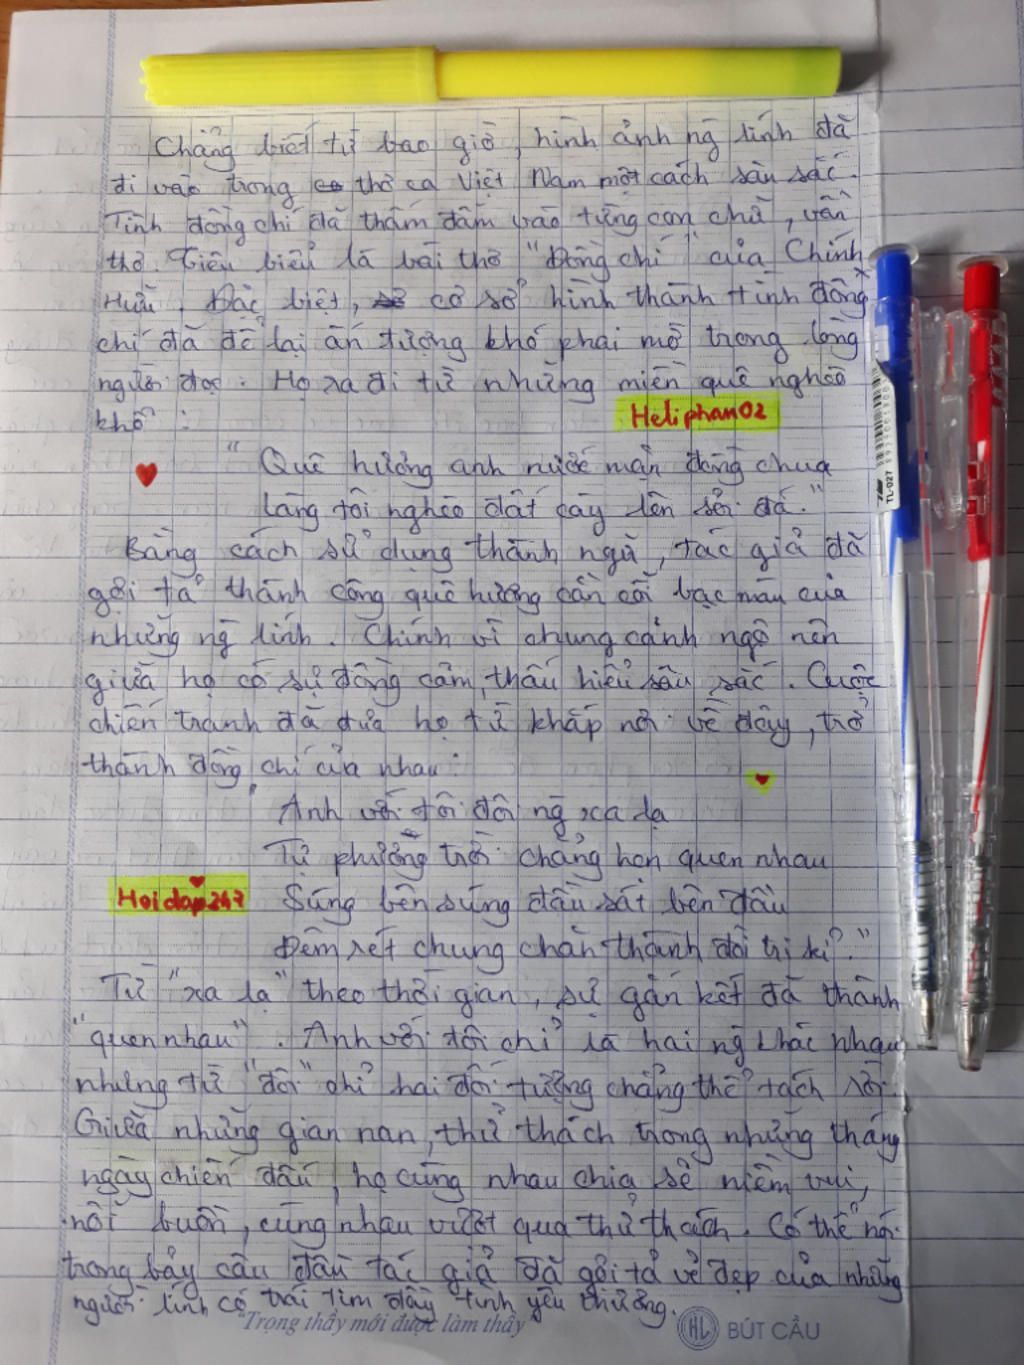 Chẳng biết từ bao giờ, hình ảnh ng lính đã
đi vào trong thơ ca Việt Nam một cách sâu sắc.
Tình đồng chí đã thấm đẫm vào từng con chữ, vần
thơ. Tiêu biểu là bài thơ "Đồng chí" của Chính
Hữu. Đặc biệt, cơ sở hình thành tình đồng
chí đã để lại ấn tượng khó phai mờ trong lòng
người đọc. Họ ra đi từ những miền quê nghèo
khổ:
Heliphan02
"Quê hương anh nước mặn đồng chua
Làng tôi nghèo đất cày lên sỏi đá."
Bằng cách sử dụng thành ngữ, tác giả đã
gợi tả thành công quê hương cằn cỗi bạc màu của
những ng lính. Chính vì chung cảnh ngộ nên
giữa họ có sự đồng cảm, thấu hiểu sâu sắc. Cuộc
chiến tranh đã đưa họ từ khắp nơi về đây, trở
thành đồng chí của nhau:
"Anh với tôi đôi ng xa lạ
Tự phương trời chẳng hẹn quen nhau
Hoidap247
Súng bên súng đầu sát bên đầu
Đêm rét chung chăn thành đôi tri kỉ."
Từ "xa lạ" theo thời gian, sự gắn kết đã thành
"quen nhau". Anh với tôi chỉ là hai ng khác nhau
nhưng từ "đôi" chỉ hai đối tượng chẳng thể tách rời.
Giữa những gian nan, thử thách trong những tháng
ngày chiến đấu, họ cùng nhau chia sẻ niềm vui,
nỗi buồn, cùng nhau vượt qua thử thách. Có thể nói
trong bảy câu đầu tác giả đã gợi tả vẻ đẹp của những
người lính có trái tim đầy tình yêu thương.
"Trông thấy mới được làm thầy"
HL BÚT CẦU
TL-027